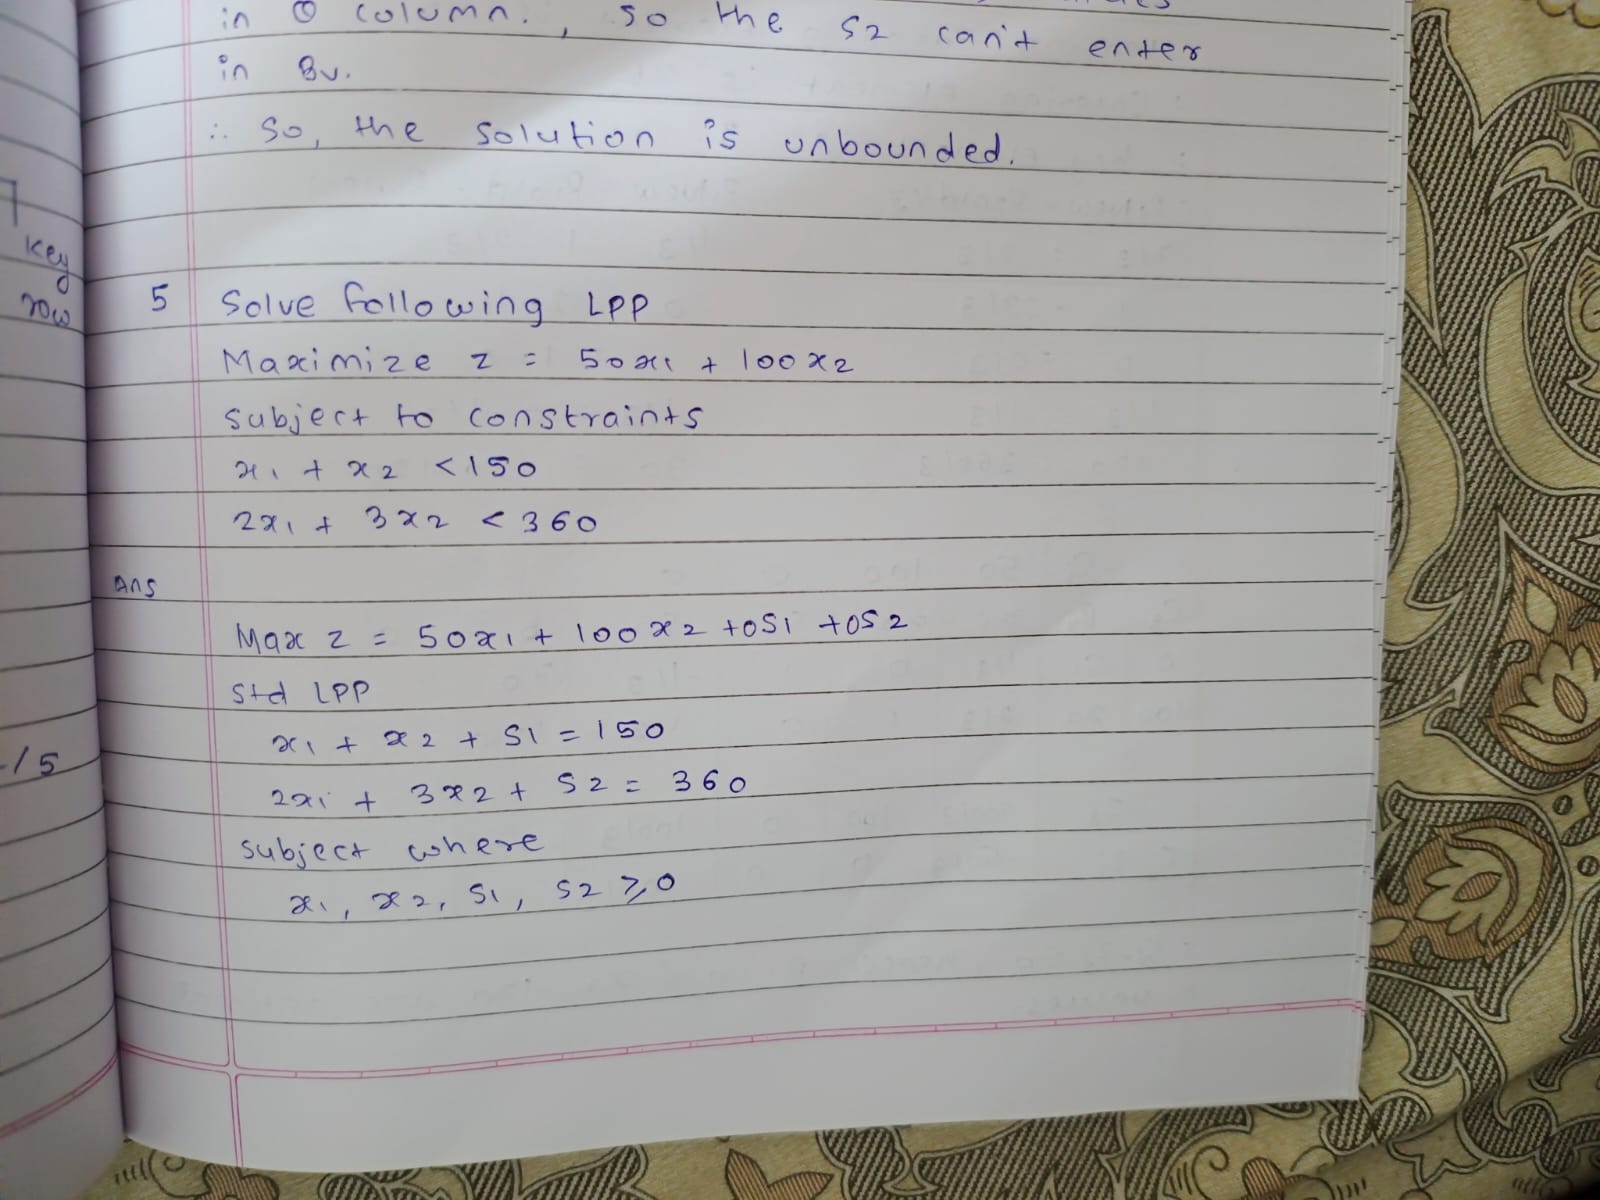 in ⊙ column. , so the S2 can't enter
in Bv.
∴ So, the solution is unbounded.
key
row
5 Solve following LPP
Maximize z = 50x1 + 100x2
subject to constraints
x1 + x2 <150
2x1 + 3x2 < 360
Ans
Max z = 50x1 + 100x2 +0S1 +0S2
Std LPP
x1 + x2 + S1 = 150
-15
2x1 + 3x2 + S2 = 360
subject where
x1, x2, S1, S2 ≥ 0